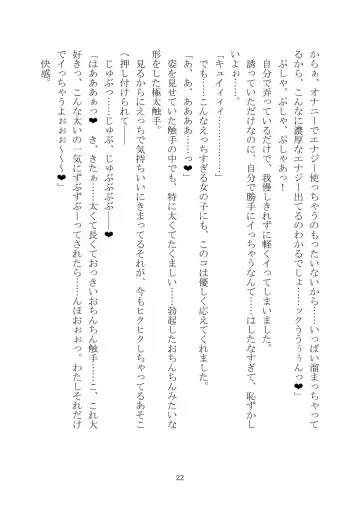 からぁ、オナニーでエナジー使っちゃうのもったいないから……いっぱい溜まっちゃって
るから、こんなに濃厚なエナジー出てるのわかるでしょ……ックううぅぅんっ❤」
ぷしゃ、ぷしゃ、ぷしゃあっ！
自分で弄っているだけで、我慢しきれずに軽くイってしまいました。
誘っていただけなのに、自分で勝手にイっちゃうなんて……はしたなすぎて、恥ずかし
いよぉ……。
「キュイィィィ…………」
でも……こんなえっちすぎる女の子にも、このコは優しく応えてくれました。
「あ、あ、ああああ……っ❤」
姿を見せていた触手の中でも、特に太くてたくましい……勃起したおちんちんみたいな
形をした極太触手。
見るからにえっちで気持ちいいにきまってるそれが、今もヒクヒクしちゃってるあそこ
へ押し付けられて――
じゅぶっ……じゅぶ、じゅぶぶぶぶ――❤
「はあああぁっ❤　き、きたぁ……太くて長くておっきいおちんちん触手……こ、これ大
好きっ……こんな太いの一気にずぶずぶーってされたら……んほおぉぉっ。わたしそれだけ
でイっちゃうよぉぉぉ～～～❤」
快感。
22